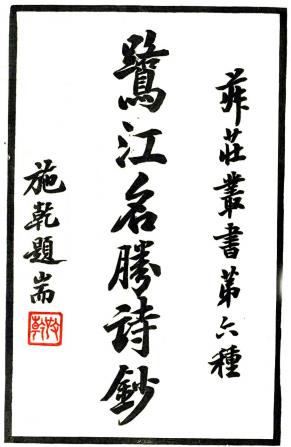 菽莊叢書第六種
鷺江名勝詩鈔
施乾題耑
施乾